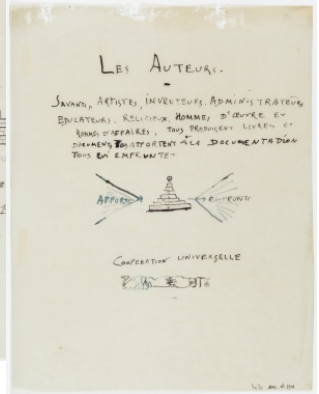 LES AUTEURS.
SAVANTS, ARTISTES, INVENTEURS, ADMINISTRATEURS
EDUCATEURS, RELIGIEUX, HOMMES D'ŒUVRE ET
HOMMES D'AFFAIRES, TOUS PRODUISENT LIVRES ET
DOCUMENTS, TOUS APPORTENT À LA DOCUMENTATION
TOUS LUI EMPRUNTENT
APPORTS
EMPRUNTS
COOPERATION UNIVERSELLE